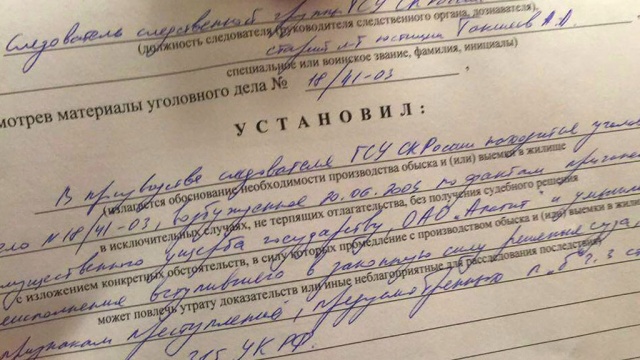 Следователь следственной группы ГСУ СК России
(должность следователя (руководителя следственного органа, дознавателя).
старший л-т юстиции А.
специальное или воинское звание, фамилия, инициалы)
мотрев материалы уголовного дела № 18/41-03 ,
УСТАНОВИЛ:
В производстве следователя ГСУ СК России находится
(излагается обоснование необходимости производства обыска и (или) выемки в жилище
N 18/41-03, возбужденное 20.06.2003 по фактам
в исключительных случаях, не терпящих отлагательства, без получения судебного решения
ущерба государству, ОАО "Апатит" и
с изложением конкретных обстоятельств, в силу которых промедление с производством обыска и (или) выемки в жилище
вступившего в законную силу решения суда,
может повлечь утрату доказательств или иные неблагоприятные для расследования последствия)
признакам преступлений, предусмотренных п. "б" ч. 3
315 УК РФ.